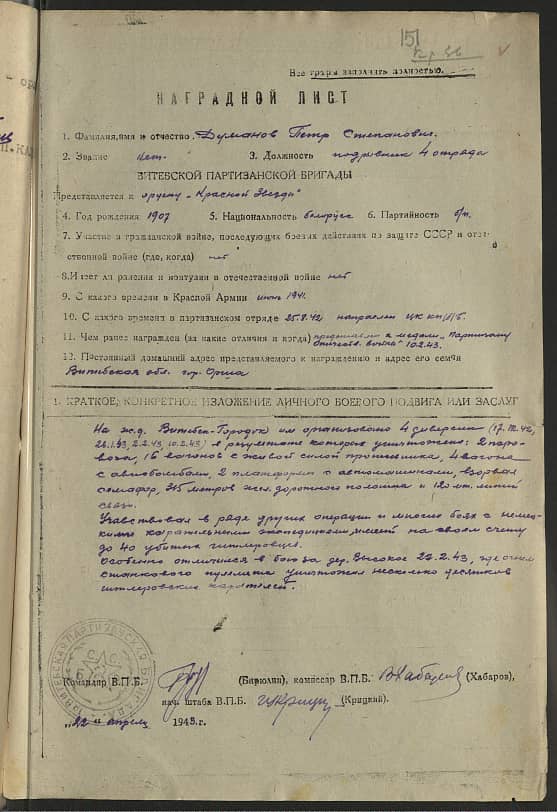 151
Все графы заполнять полностью.
НАГРАДНОЙ ЛИСТ
1. Фамилия, имя и отчество Думанов Петр Степанович.
2. Звание нет. 3. Должность подрывник 4 отряда
ВИТЕБСКОЙ ПАРТИЗАНСКОЙ БРИГАДЫ
Представляется к ордену „Красной Звезды"
4. Год рождения 1907 5. Национальность белорусс 6. Партийность б/п.
7. Участие в гражданской войне, последующих боевых действиях по защите СССР и отече-
ственной войне (где, когда) нет
8. Имеет ли ранения и контузии в отечественной войне нет
9. С какого времени в Красной Армии июнь 1941.
10. С какого времени в партизанском отряде 25.8.42 направлен ЦК КП(б)Б.
11. Чем ранее награжден (за какие отличия и когда) представлен к медали „Партизану
Отечеств. войны" 10.2.43.
12. Постоянный домашний адрес представляемого к награждению и адрес его семьи
Витебская обл. гор. Орша
1. КРАТКОЕ, КОНКРЕТНОЕ ИЗЛОЖЕНИЕ ЛИЧНОГО БОЕВОГО ПОДВИГА ИЛИ ЗАСЛУГ
На ж.д. Витебск-Городок им организовано 4 диверсии (17.12.42,
26.1.43, 2.2.43, 10.2.43) в результате которых уничтожено: 2 паро-
воза, 16 вагонов с живой силой противника, 4 вагона
с авиабомбами, 2 платформы с автомашинами, взорван
семафор, 345 метров жел. дорожного полотна и 120 мт. линий
связи.
Участвовал в ряде других операций и многих боях с немец-
кими карательными экспедициями, имеет на своем счету
до 40 убитых гитлеровцев.
Особенно отличился в бою за дер. Высокое 22.2.43, где огнем
станкового пулемета уничтожил несколько десятков
гитлеровских карателей.
Командир В.П.Б. (Бирюлин), комиссар В.П.Б. ВХабаров (Хабаров),
нач. штаба В.П.Б. Крицкий (Крицкий).
„22" апрель 1943. г.